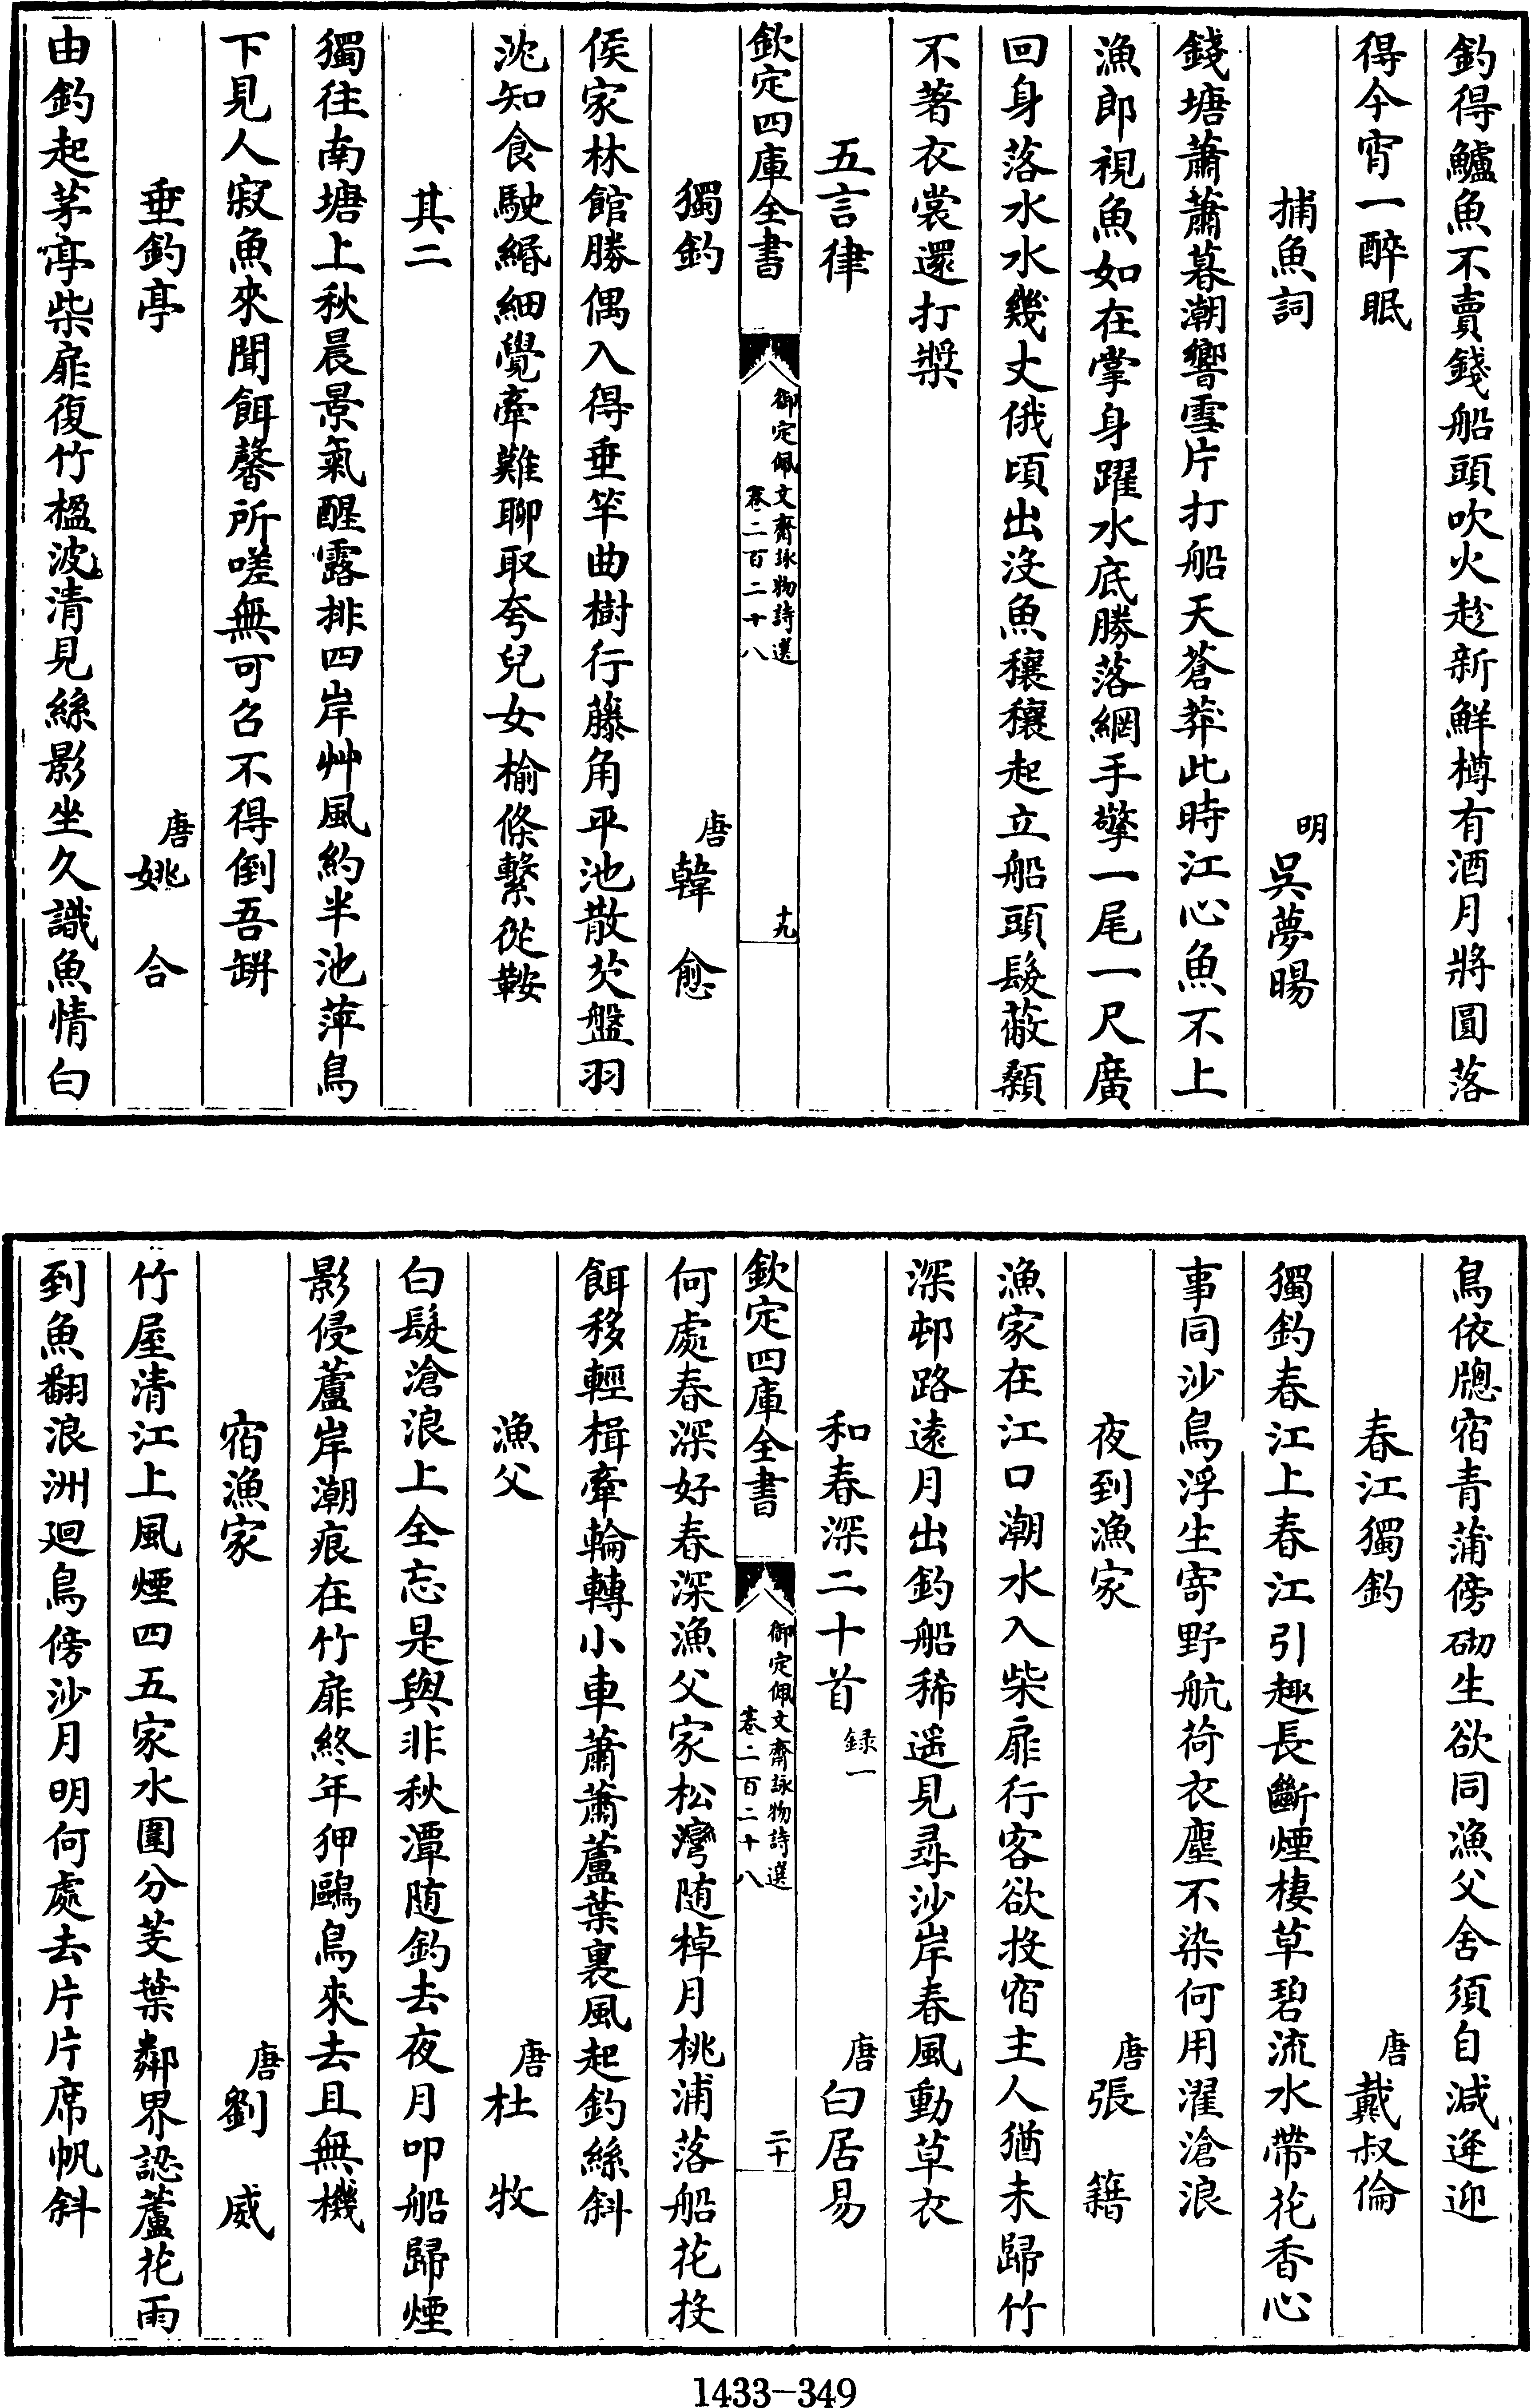 釣得鱸魚不賣錢船頭吹火趁新鮮樽有酒月將圓落
得今宵一醉眠
捕魚詞 明 吳夢暘
錢塘蕭蕭暮潮響雪片打船天蒼莽此時江心魚不上
漁郎視魚如在掌身躍水底勝落網手擎一尾一尺廣
回身落水水幾丈俄頃出沒魚穰穰起立船頭髮蔽顙
不著衣裳還打槳
五言律
欽定四庫全書 御定佩文齋詠物詩選 卷二百二十八 十九
獨釣 唐 韓愈
侯家林館勝偶入得垂竿曲樹行藤角平池散芡盤羽
沈知食駛緡細覺牽難聊取夸兒女榆條繫從鞍
其二
獨往南塘上秋晨景氣醒露排四岸艸風約半池萍鳥
下見人寂魚來聞餌馨所嗟無可召不得倒吾缾
垂釣亭 唐 姚合
由釣起茅亭柴扉復竹楹波清見絲影坐久識魚情白
鳥依牕宿青蒲傍砌生欲同漁父舍須自減逢迎
春江獨釣 唐 戴叔倫
獨釣春江上春江引趣長斷煙棲草碧流水帶花香心
事同沙鳥浮生寄野航荷衣塵不染何用濯滄浪
夜到漁家 唐 張籍
漁家在江口潮水入柴扉行客欲投宿主人猶未歸竹
深邨路遠月出釣船稀遥見尋沙岸春風動草衣
和春深二十首 録一 唐 白居易
欽定四庫全書 御定佩文齋詠物詩選 卷二百二十八 二十
何處春深好春深漁父家松灣随棹月桃浦落船花投
餌移輕楫牽輪轉小車蕭蕭蘆葉裏風起釣絲斜
漁父 唐 杜牧
白髮滄浪上全忘是與非秋潭随釣去夜月叩船歸煙
影侵蘆岸潮痕在竹扉終年狎鷗鳥來去且無機
宿漁家 唐 劉威
竹屋清江上風煙四五家水圍分芰葉鄰界認蘆花雨
到魚翻浪洲廻鳥傍沙月明何處去片片席帆斜
1433-349